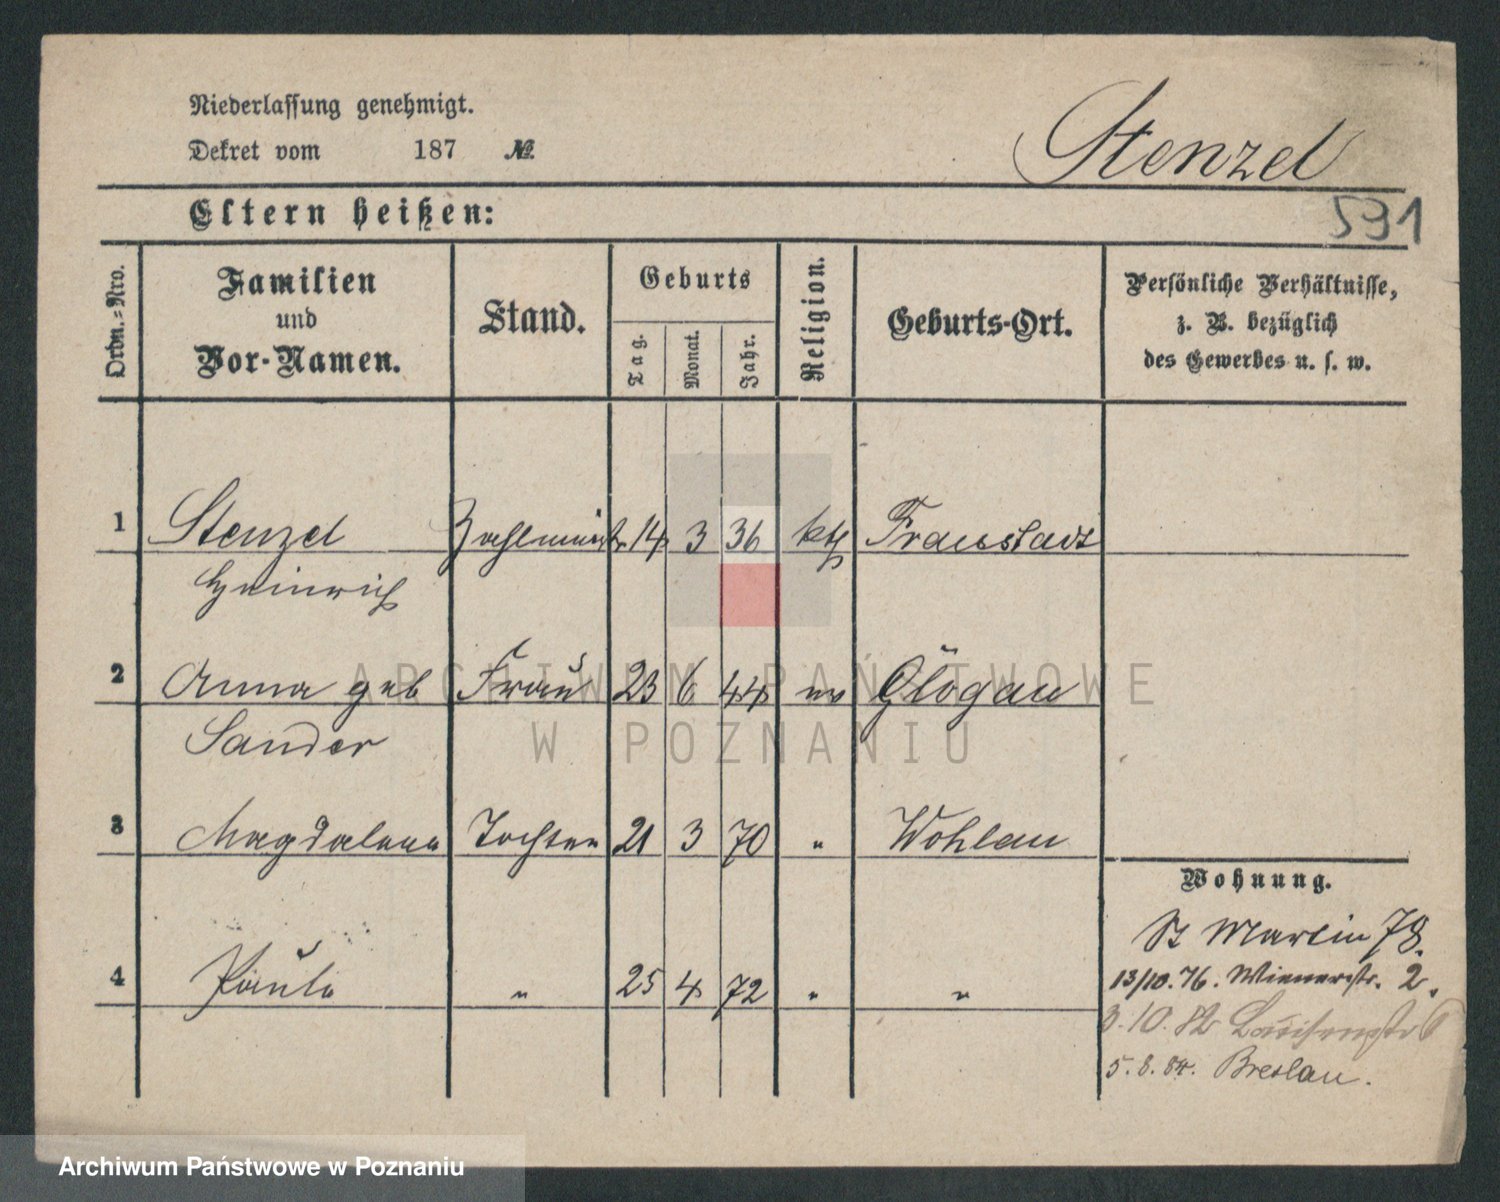 Niederlassung genehmigt.
Dekret vom 187 №
Stenzel
Eltern heißen:
591
Ordn.-Nro.
Familien
und
Vor-Namen.
Stand.
Geburts
Tag.
Monat.
Jahr.
Religion.
Geburts-Ort.
Persönliche Verhältnisse,
z. B. bezüglich
des Gewerbes u. s. w.
1 Stenzel Zahlmeistr 14 3 36 kth Fraustadt
Heinrich
2 Anna geb Frau 23 6 44 ev Glogau
Sander
3 Magdalena Tochter 21 3 70 " Wohlau
Wohnung.
St Martin 78.
4 Paula " 25 4 72 " "
13/10.76. Wienerstr. 2.
3.10.82 Louisenstr
5.8.84. Breslau.
ARCHIWUM PAŃSTWOWE
W POZNANIU
Archiwum Państwowe w Poznaniu